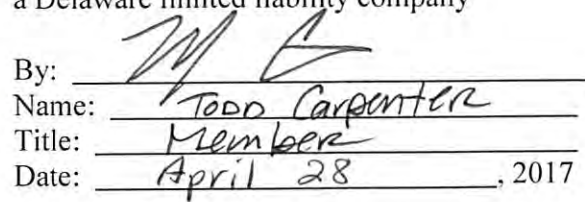 a Delaware limited liability company
By:
Name: Todd Carpenter
Title: Member
Date: April 28, 2017